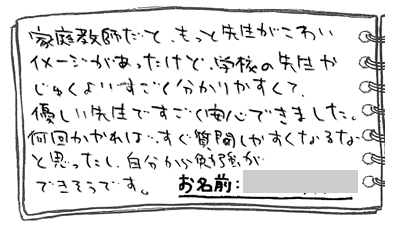 家庭教師だと、もっと先生がこわい
イメージがあったけど、学校の先生や
じゅくよりすごく分かりやすくて、
優しい先生ですごく安心できました。
何回かやれば、すぐ質問しやすくなるな
と思ったし、自分から勉強が
できそうです。
お名前: